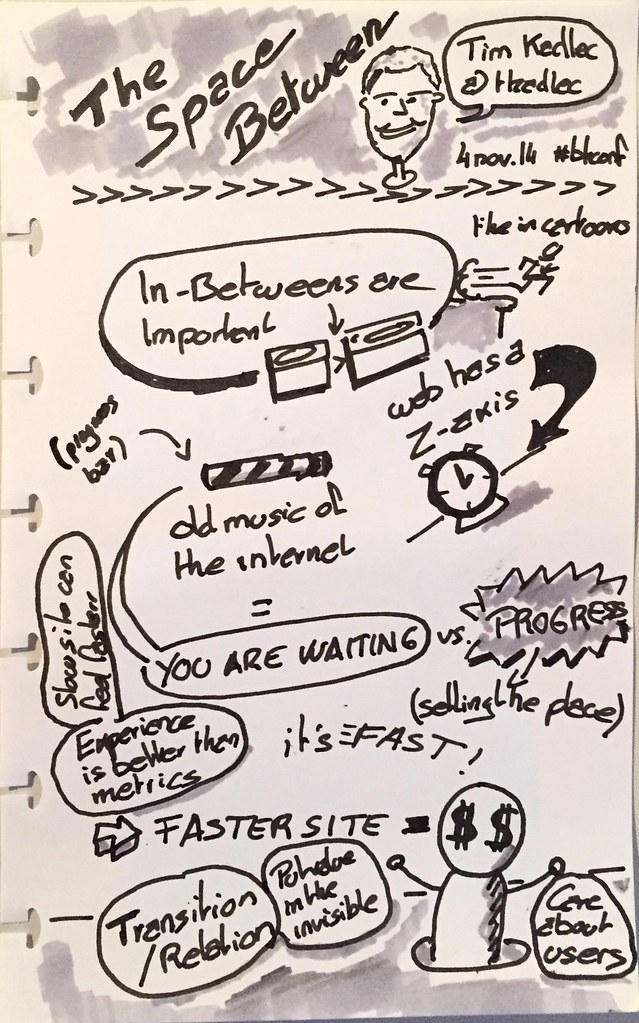 The
Space
Between
Tim Kadlec
@tkadlec
4 nov. 14 #btconf
like in cartoons
In-Betweens are
important
web has a
Z-axis
(progress
bar)
old music of
the internet
=
YOU ARE WAITING vs. PROGRESS
(selling the place)
Slow site can
feel faster
Experience
is better than
metrics
it's FAST!
FASTER SITE = $ $
Transition
/Relation
Put value
in the
invisible
Care
about
users